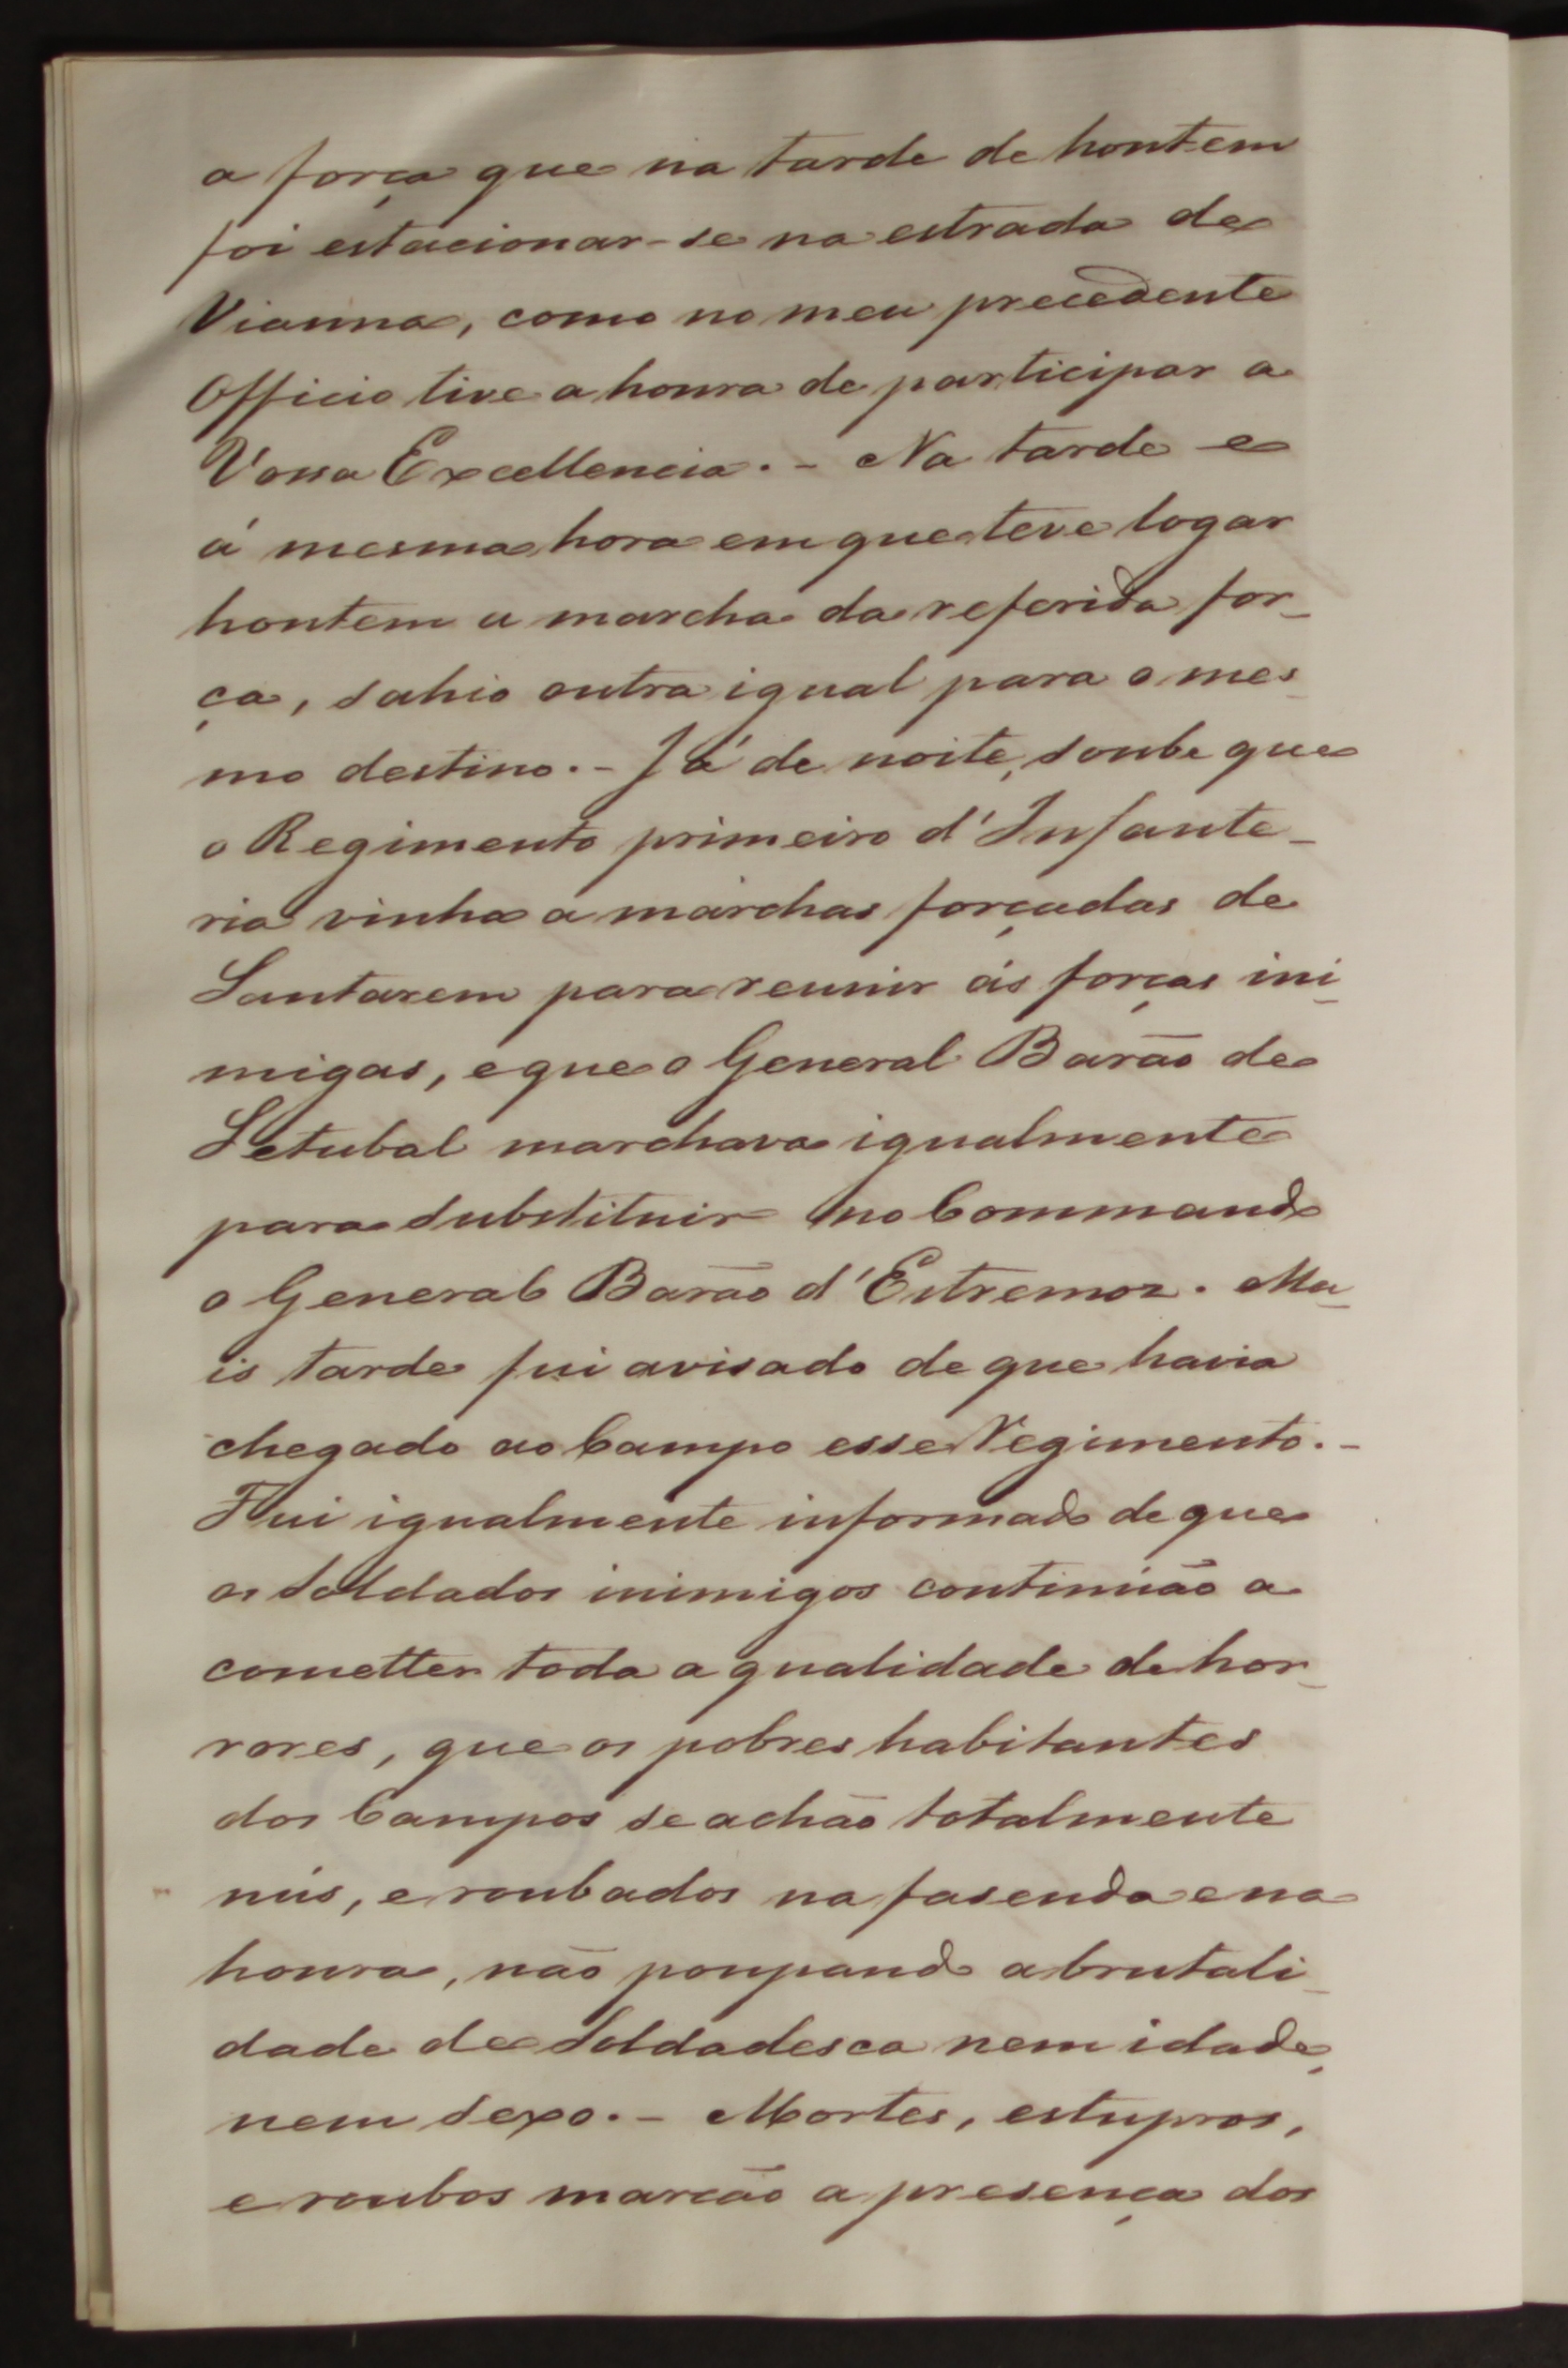 a força que na tarde de hontem
foi estacionar-se na estrada de
Vianna, como no meu precedente
Officio tive a honra de participar a
Vossa Excellencia. - Na tarde e
á mesma hora em que teve logar
hontem a marcha da referida for-
ça, sahio outra igual para o mes-
mo destino. - Já de noite, soube que
o Regimento primeiro d'Infante-
ria vinha a marchas forçadas de
Santarem para reunir ás forças ini-
migas, e que o General Barão de
Setubal marchava igualmente
para substituir no Commando
o General Barão d'Estremoz. Ma-
is tarde fui avisado de que havia
chegado ao Campo esse Regimento. -
Fui igualmente informado de que
os soldados inimigos continuão a
cometter toda a qualidade de hor-
rores, que os pobres habitantes
dos Campos se achão totalmente
nús, e roubados na fasenda e na
honra, não poupando a brutali-
dade de Soldadesca nem idade,
nem sexo. - Mortes, estupros,
e roubos marcão a presença dos